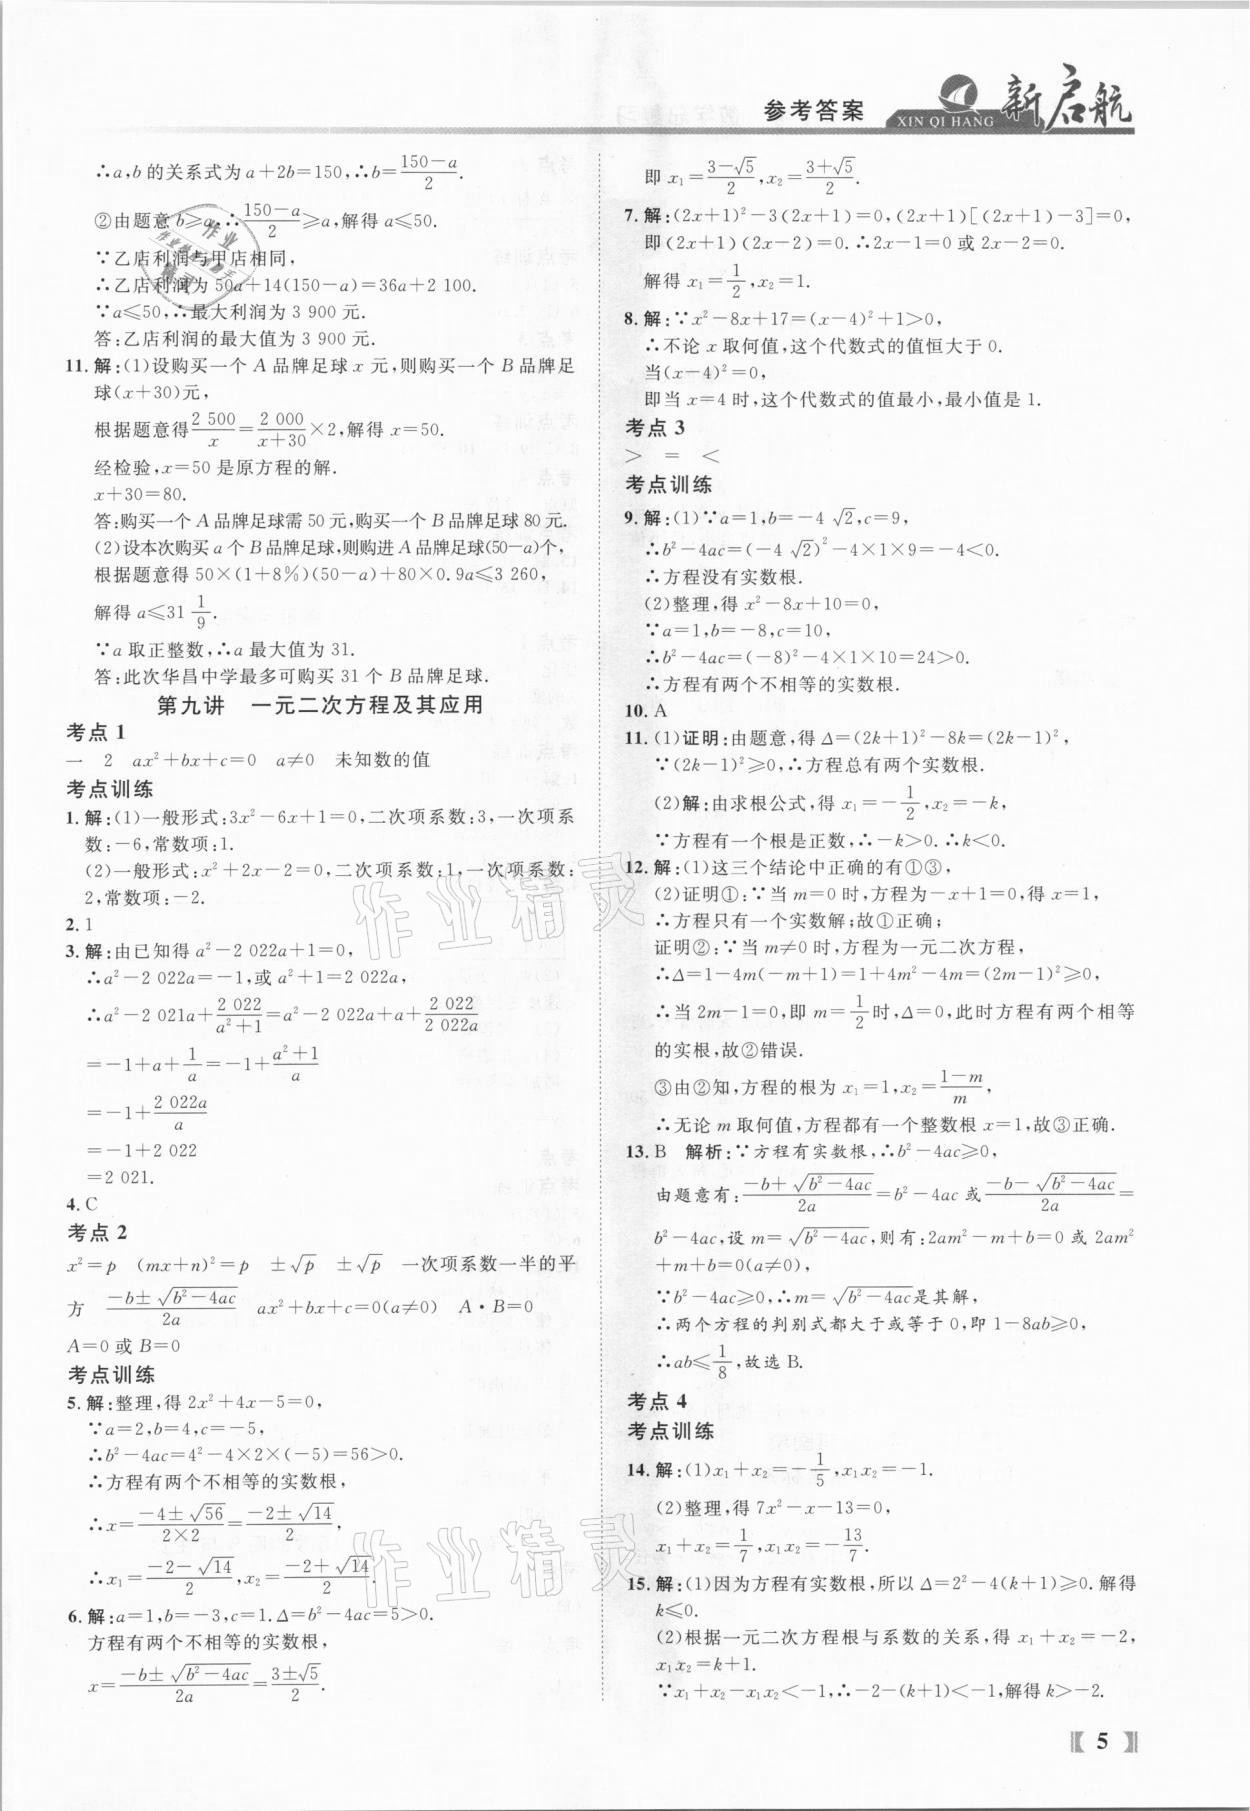 参考答案
XIN QI HANG
新启航
∴a,b的关系式为a+2b=150,∴b=(150-a)/2.
②由题意b≥a,∴(150-a)/2≥a,解得a≤50.
∵乙店利润与甲店相同,
∴乙店利润为50a+14(150-a)=36a+2 100.
∵a≤50,∴最大利润为3 900元.
答:乙店利润的最大值为3 900元.
11.解:(1)设购买一个A品牌足球x元,则购买一个B品牌足
球(x+30)元,
根据题意得2 500/x=2 000/(x+30)×2,解得x=50.
经检验,x=50是原方程的解.
x+30=80.
答:购买一个A品牌足球需50元,购买一个B品牌足球80元.
(2)设本次购买a个B品牌足球,则购进A品牌足球(50-a)个,
根据题意得50×(1+8%)(50-a)+80×0.9a≤3 260,
解得a≤31 1/9.
∵a取正整数,∴a最大值为31.
答:此次华昌中学最多可购买31个B品牌足球.
第九讲 一元二次方程及其应用
考点1
一 2 ax²+bx+c=0 a≠0 未知数的值
考点训练
1.解:(1)一般形式:3x²-6x+1=0,二次项系数:3,一次项系
数:-6,常数项:1.
(2)一般形式:x²+2x-2=0,二次项系数:1,一次项系数:
2,常数项:-2.
2.1
3.解:由已知得a²-2 022a+1=0,
∴a²-2 022a=-1,或a²+1=2 022a,
∴a²-2 021a+2 022/(a²+1)=a²-2 022a+a+2 022/2 022a
=-1+a+1/a=-1+(a²+1)/a
=-1+2 022a/a
=-1+2 022
=2 021.
4.C
考点2
x²=p (mx+n)²=p ±√p ±√p 一次项系数一半的平
方 (-b±√(b²-4ac))/2a ax²+bx+c=0(a≠0) A·B=0
A=0或B=0
考点训练
5.解:整理,得2x²+4x-5=0,
∵a=2,b=4,c=-5,
∴b²-4ac=4²-4×2×(-5)=56>0.
∴方程有两个不相等的实数根,
∴x=(-4±√56)/(2×2)=(-2±√14)/2,
∴x₁=(-2-√14)/2,x₂=(-2+√14)/2.
6.解:a=1,b=-3,c=1.Δ=b²-4ac=5>0.
方程有两个不相等的实数根,
x=(-b±√(b²-4ac))/2a=(3±√5)/2.
即x₁=(3-√5)/2,x₂=(3+√5)/2.
7.解:(2x+1)²-3(2x+1)=0,(2x+1)[(2x+1)-3]=0,
即(2x+1)(2x-2)=0.∴2x-1=0或2x-2=0.
解得x₁=1/2,x₂=1.
8.解:∵x²-8x+17=(x-4)²+1>0,
∴不论x取何值,这个代数式的值恒大于0.
当(x-4)²=0,
即当x=4时,这个代数式的值最小,最小值是1.
考点3
> = <
考点训练
9.解:(1)∵a=1,b=-4√2,c=9,
∴b²-4ac=(-4√2)²-4×1×9=-4<0.
∴方程没有实数根.
(2)整理,得x²-8x+10=0,
∵a=1,b=-8,c=10,
∴b²-4ac=(-8)²-4×1×10=24>0.
∴方程有两个不相等的实数根.
10.A
11.(1)证明:由题意,得Δ=(2k+1)²-8k=(2k-1)²,
∵(2k-1)²≥0,∴方程总有两个实数根.
(2)解:由求根公式,得x₁=-1/2,x₂=-k,
∵方程有一个根是正数,∴-k>0.∴k<0.
12.解:(1)这三个结论中正确的有①③,
(2)证明①:∵当m=0时,方程为-x+1=0,得x=1,
∴方程只有一个实数解;故①正确;
证明②:∵当m≠0时,方程为一元二次方程,
∴Δ=1-4m(-m+1)=1+4m²-4m=(2m-1)²≥0,
∴当2m-1=0,即m=1/2时,Δ=0,此时方程有两个相等
的实根,故②错误.
③由②知,方程的根为x₁=1,x₂=(1-m)/m,
∴无论m取何值,方程都有一个整数根x=1,故③正确.
13.B 解析:∵方程有实数根,∴b²-4ac≥0,
由题意有:(-b+√(b²-4ac))/2a=b²-4ac或(-b-√(b²-4ac))/2a=
b²-4ac,设m=√(b²-4ac),则有:2am²-m+b=0或2am²
+m+b=0(a≠0),
∵b²-4ac≥0,∴m=√(b²-4ac)是其解,
∴两个方程的判别式都大于或等于0,即1-8ab≥0,
∴ab≤1/8,故选B.
考点4
考点训练
14.解:(1)x₁+x₂=-1/5,x₁x₂=-1.
(2)整理,得7x²-x-13=0,
x₁+x₂=1/7,x₁x₂=-13/7.
15.解:(1)因为方程有实数根,所以Δ=2²-4(k+1)≥0.解得
k≤0.
(2)根据一元二次方程根与系数的关系,得x₁+x₂=-2,
x₁x₂=k+1.
∵x₁+x₂-x₁x₂<-1,∴-2-(k+1)<-1,解得k>-2.
作业精灵
作业精灵
5